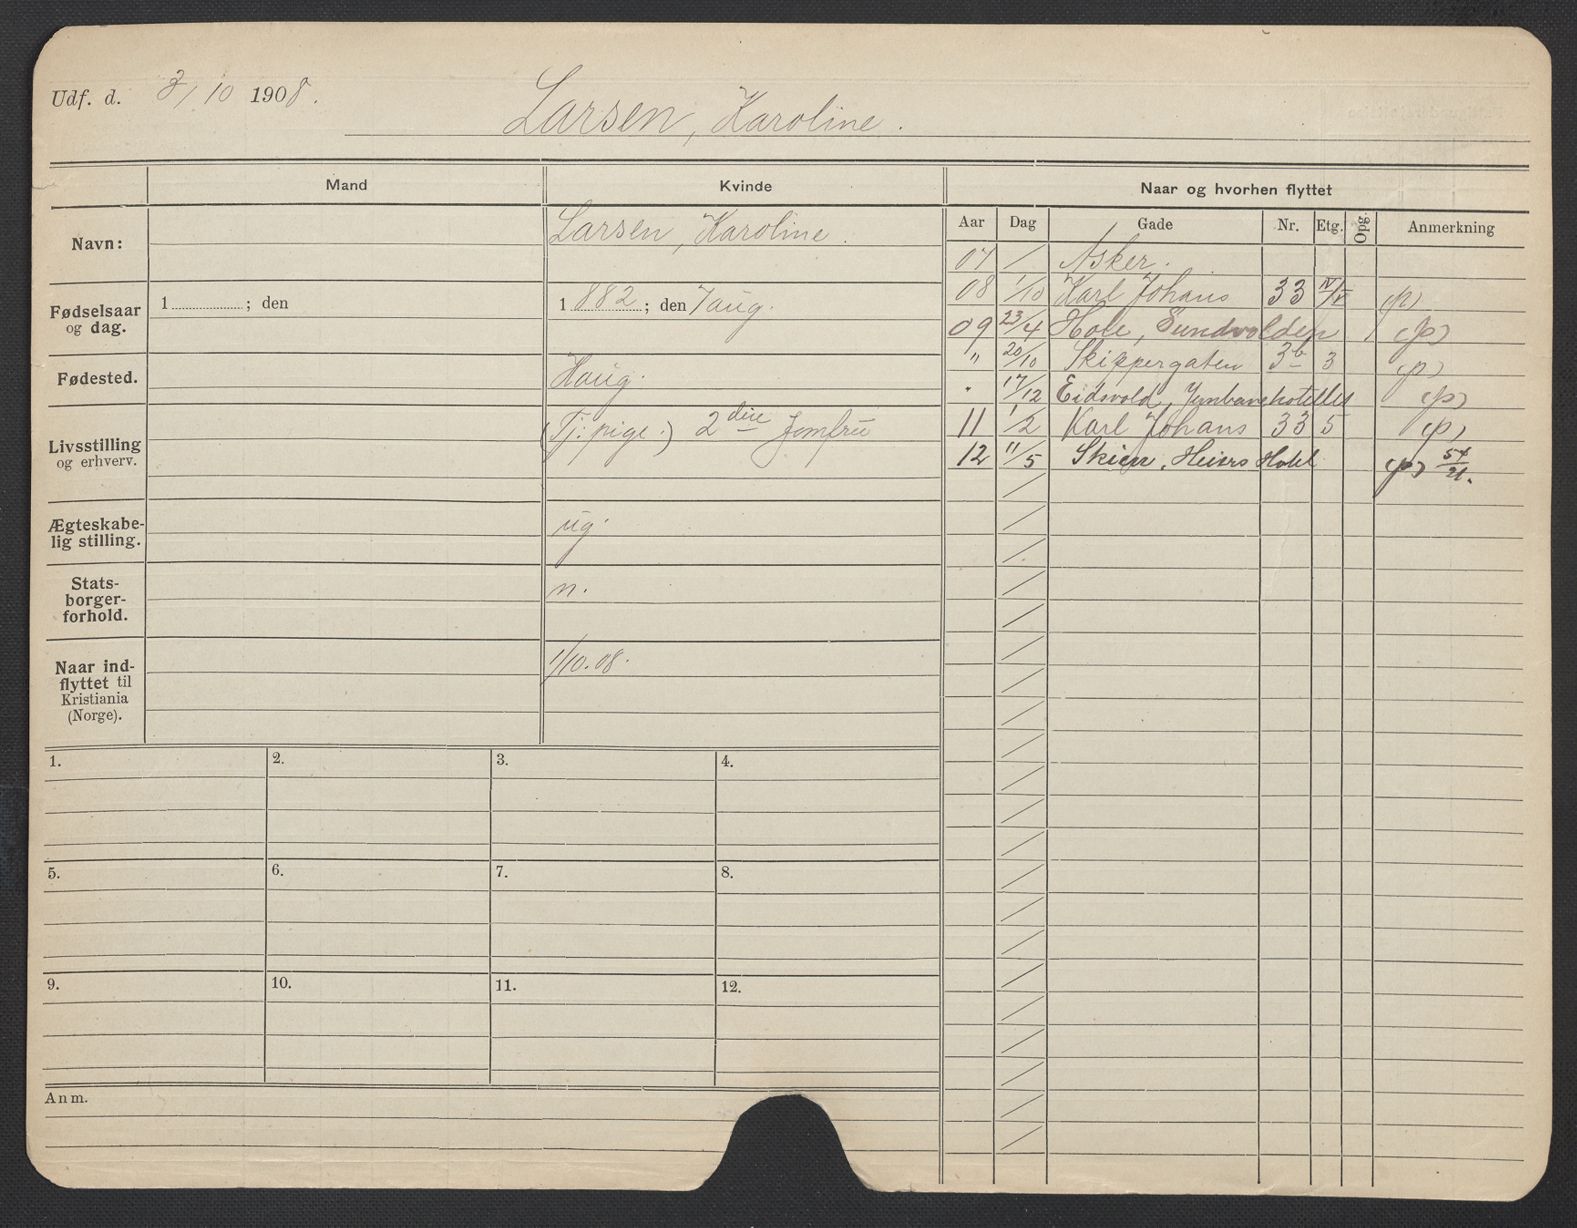 Udf. d. 3/10 1908.
Larsen, Karoline.
Mand
Kvinde
Naar og hvorhen flyttet
Aar Dag Gade Nr. Etg. Opg. Anmerkning
Navn:
Larsen, Karoline.
Fødselsaar og dag.
1 ; den
1882; den 7 aug.
Fødested.
Haug.
Livsstilling og erhverv.
(Tj: pige:) 2 den Jomfru
Ægteskabe-
lig stilling.
ug.
Stats-
borger-
forhold.
n.
Naar ind-
flyttet til
Kristiania
(Norge).
1/10.08.
07 / Asker.
08 1/10 Karl Johans 33 IV/V (p)
09 23/4 Hole, Sundvolden (p)
" 20/10 Skippergaten 3b 3 (p)
" 17/12 Eidsvold, Jernbanehotellet (p)
11 1/2 Karl Johans 33 5 (p)
12 11/5 Skien, Høiers Hotel (p) 54/21.
1. 2. 3. 4.
5. 6. 7. 8.
9. 10. 11. 12.
Anm.